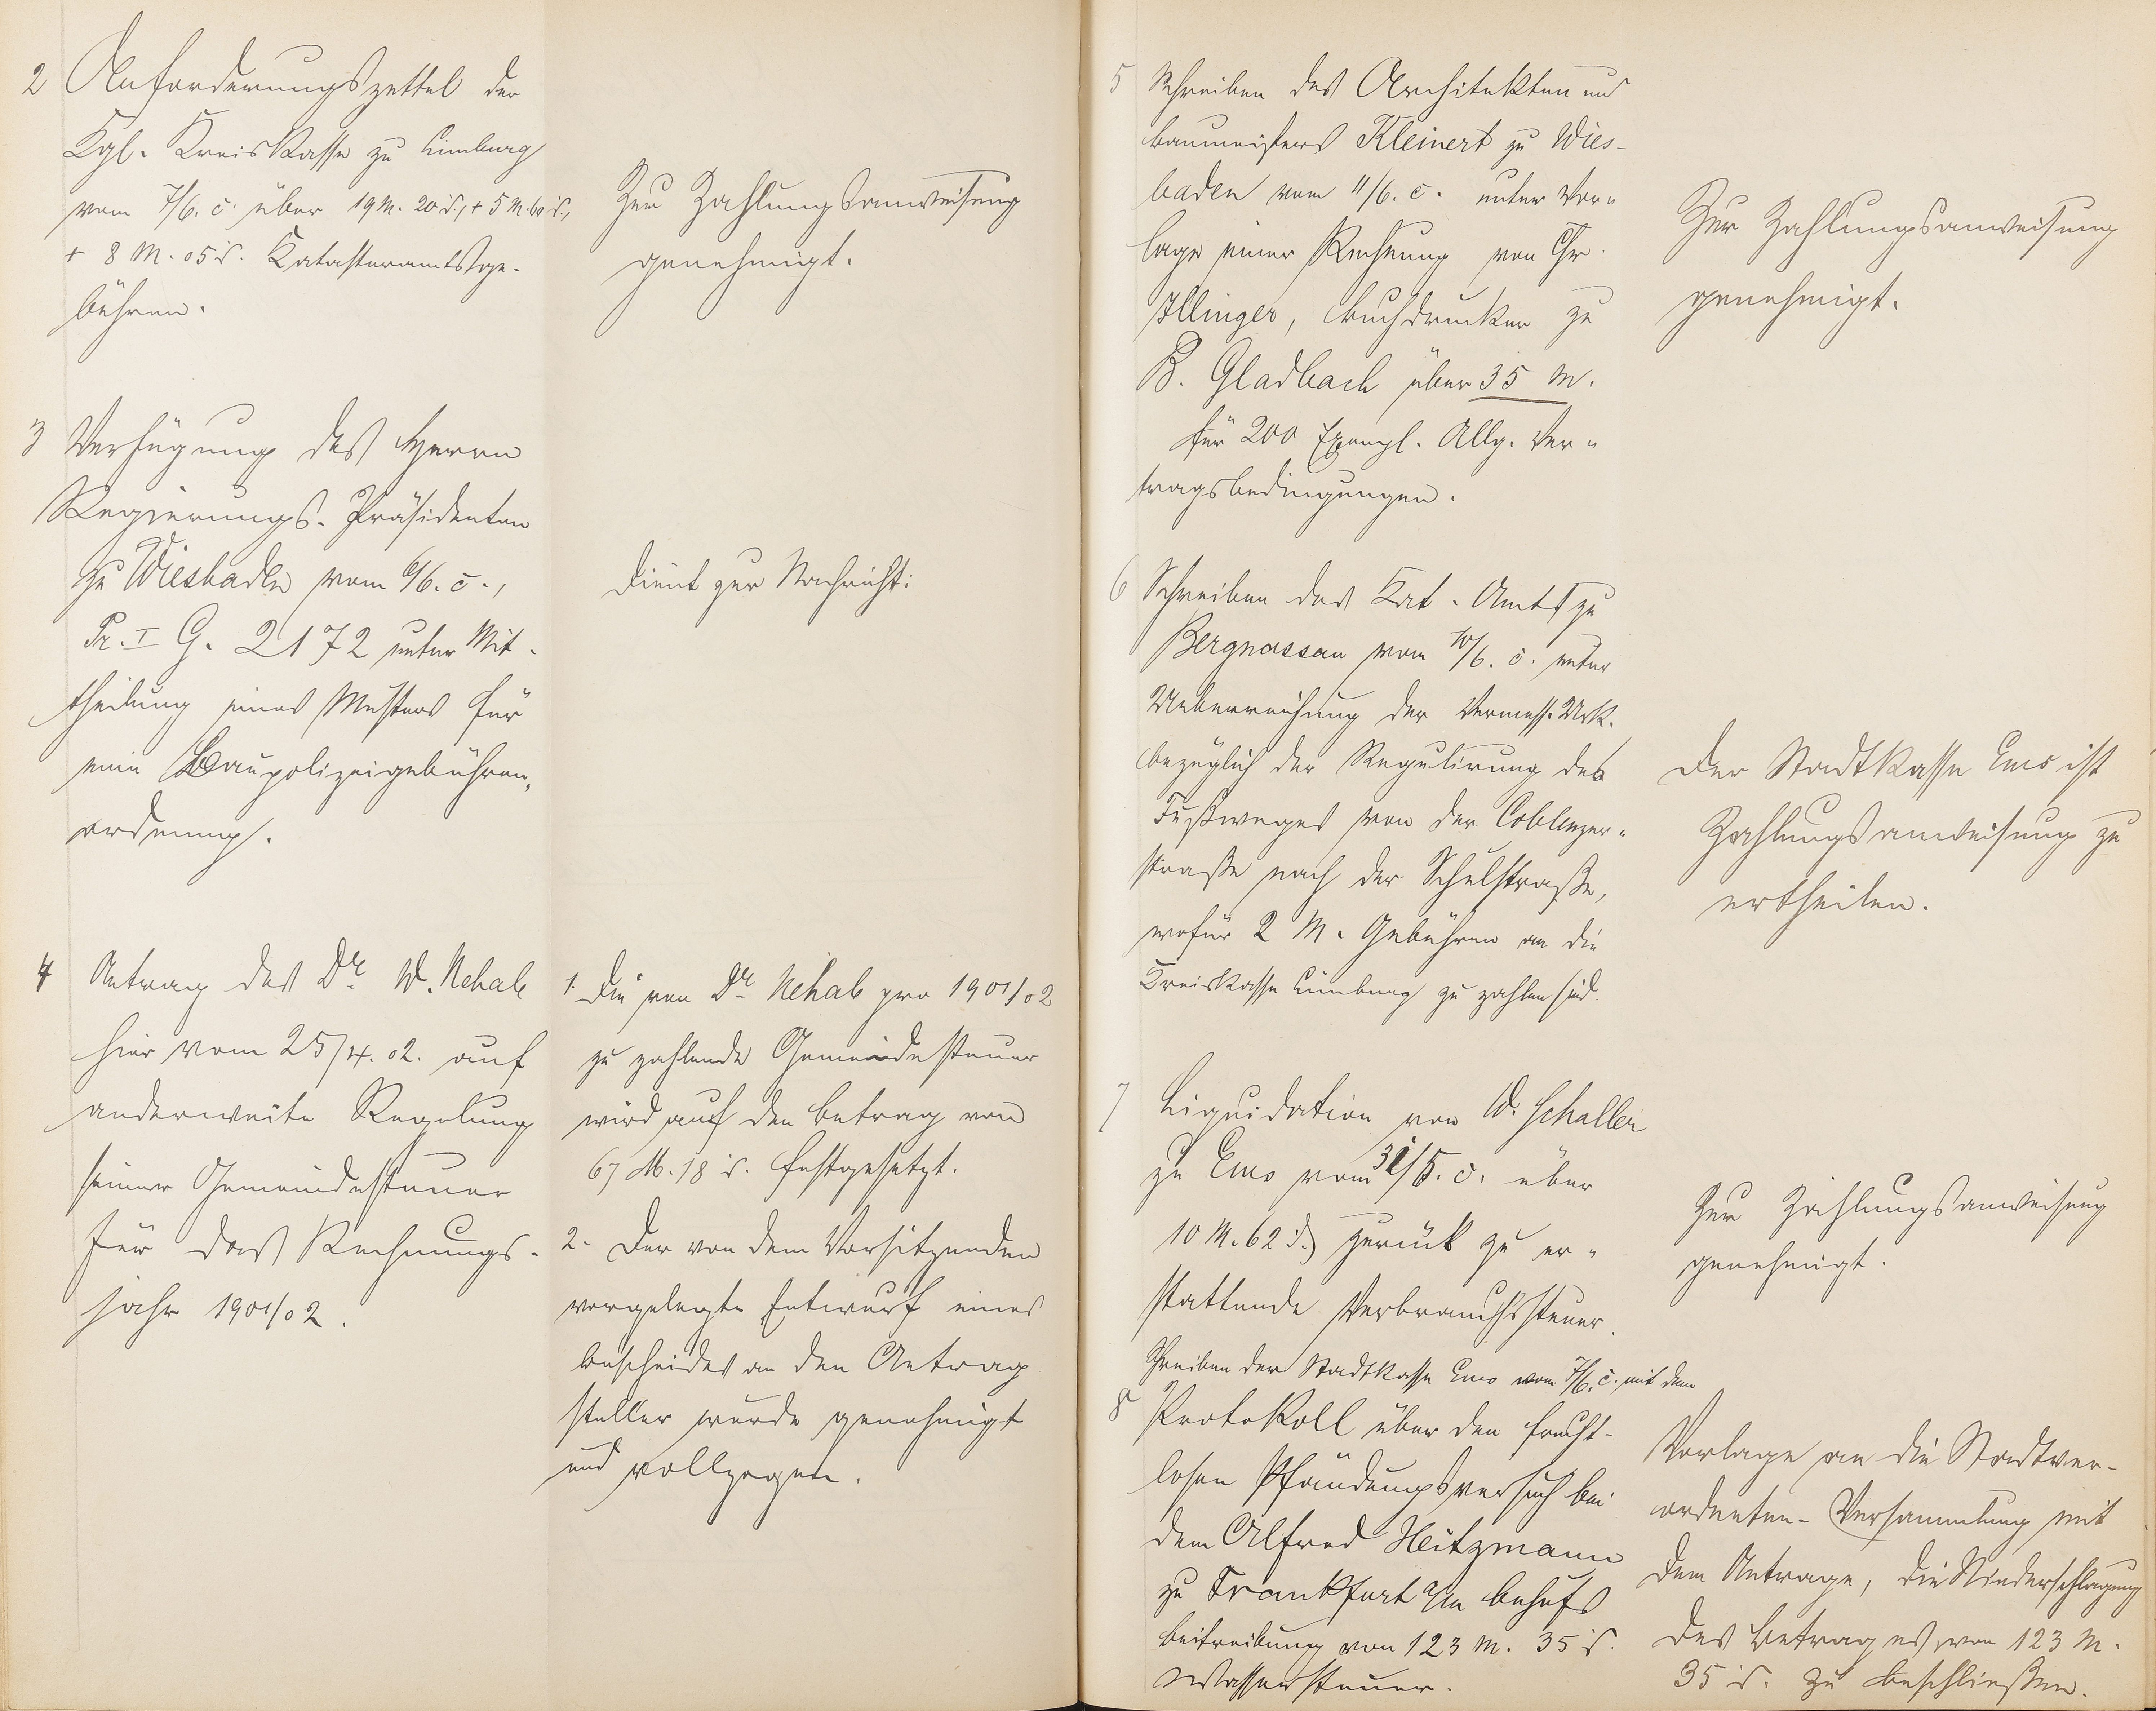 2 Anforderungszettel der
Kgl. Kreiskasse zu Limburg
vom 7/6. c. über 19 M. 20 ₰, + 5 M. 60 ₰,
+ 8 M. 05 ₰. Katasteramtsge-
bühren.
Zur Zahlungsanweisung
genehmigt.
3 Verfügung des Herrn
Regierungs-Präsidenten
zu Wiesbaden vom 6/6. c.,
Pr. I G. 2172 unter Mit-
theilung eines Musters für
eine Baupolizeigebühren-
ordnung.
Dient zur Nachricht.
4 Antrag des Dr. W. Nehab
hier vom 25/4. 02. auf
anderweite Regelung
seiner Gemeindesteuer
für das Rechnungs-
jahr 1901/02.
1. Die von Dr. Nehab pro 1901/02
zu zahlende Gemeindesteuer
wird auf den Betrag von
67 M. 18 ₰. festgesetzt.
2. Der von dem Vorsitzenden
vorgelegte Entwurf eines
Bescheides an den Antrag
steller wurde genehmigt
und vollzogen.
5 Schreiben des Architekten und
Baumeisters Kleinert zu Wies-
baden vom 11/6. c. unter Vor-
lage einer Rechnung von Chr.
Illinger, Buchdrucker zu
B. Gladbach über 35 M.
für 200 Exempl. Allg. Ver-
tragsbedingungen.
Zur Zahlungsanweisung
genehmigt.
6 Schreiben des Kat. Amts zu
Bergnassau vom 10/6. c. unter
Ueberreichung der Vermess. Urk.
bezüglich der Regulirung des
Fußweges von der Coblenzer-
straße nach der Schulstraße,
wofür 2 M. Gebühren an die
Kreiskasse Limburg zu zahlen sind.
Der Stadtkasse Ems ist
Zahlungsanweisung zu
ertheilen.
7 Liquidation von W. Schaller
zu Ems vom 31/5. c. über
10 M. 62 ₰ zurück zu er-
stattende Verbrauchssteuer.
Zur Zahlungsanweisung
genehmigt.
Schreiben der Stadtkasse Ems vom 7/6. c. mit dem
8 Protokoll über den frucht-
losen Pfändungsversuch bei
dem Alfred Heitzmann
zu Frankfurt a/M behufs
Beitreibung von 123 M. 35 ₰.
Wassersteuer.
Vorlage an die Stadtver-
ordneten-Versammlung mit
dem Antrage, die Niederschlagung
des Betrages von 123 M.
35 ₰. zu beschließen.